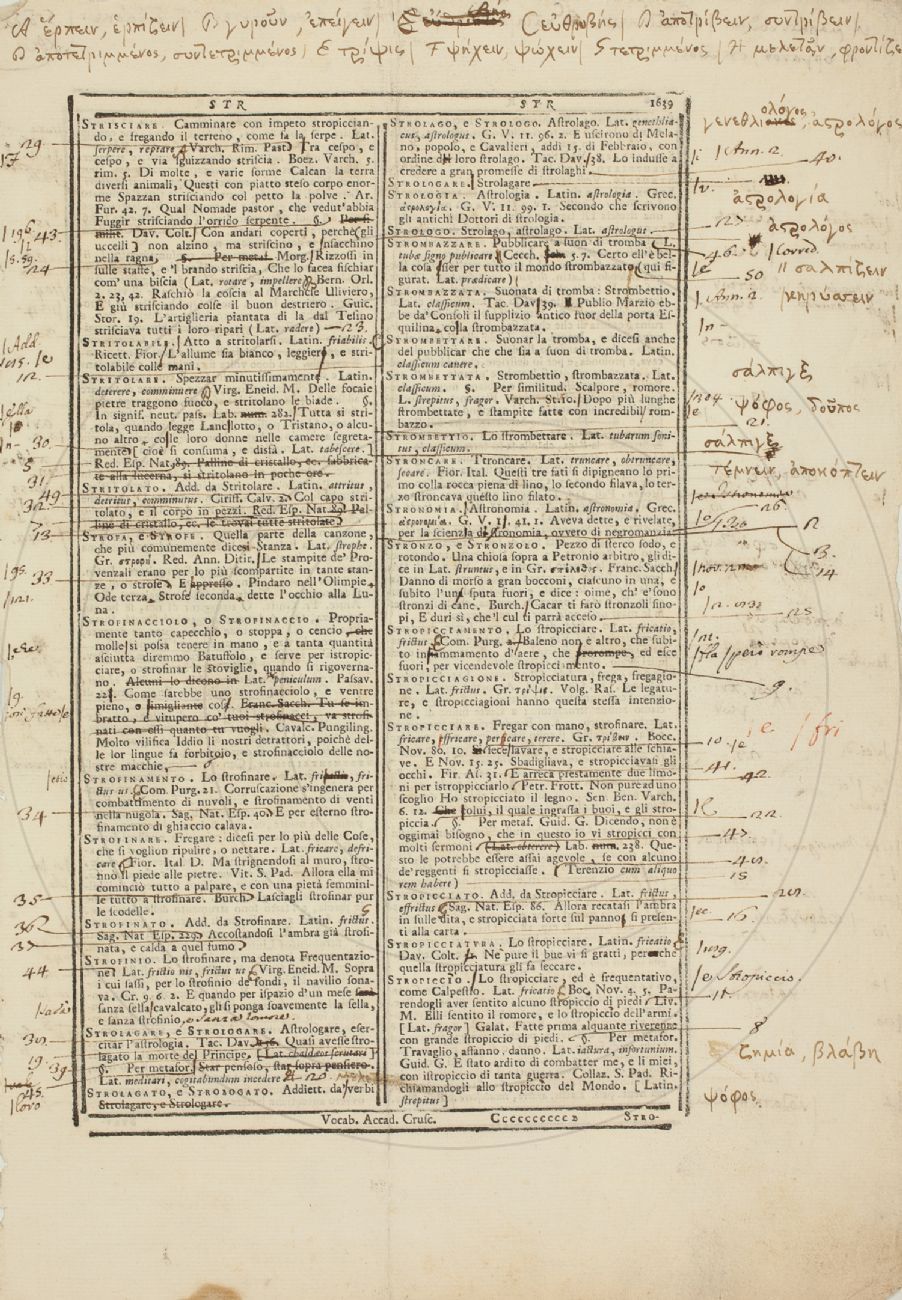 Α ἕρπειν, ἑρπίζειν | Β γυροῦν, ἐπείγειν | C εὐθρυβής | D ἀποτρίβειν, συντρίβειν |
D ἀποτετριμμένος, συντετριμμένος, E τρίψις | F ψήχειν, ψώχειν | τετριμμένος | H μελετᾶν, φροντίζε
STR
STRISCIARE. Camminare con impeto stropiccian-
do, e fregando il terreno, come fa la serpe. Lat.
serpere, reptare. Varch. Rim. Past. Tra cespo, e
cespo, e via sguizzando striscia. Boez. Varch. 5.
rim. 5. Di molte, e varie forme Calcan la terra
diversi animali, Questi con piatto steso corpo enor-
me Spazzan strisciando col petto la polve. Ar.
Fur. 42. 7. Qual Nomade pastor, che vedut'abbia
Fuggir strisciando l'orrido serpente. §. Per si-
milit. Dav. Colt. Con andari coperti, perchè gli
uccelli non alzino, ma striscino, e insacchino
nella ragna. §. Per metaf. Morg. Rizzossi in
sulle staffe, e 'l brando striscia, Che lo facea fischiar
com' una biscia (Lat. rotare, impellere) Bern. Orl.
2. 23. 42. Raschiò la coscia al Marchese Uliviero,
E giù strisciando colse il buon destriero. Guic.
Stor. 19. L'artiglieria piantata di là dal Tesino
strisciava tutti i loro ripari (Lat. radere) 23.
STRITOLABILE. Atto a stritolarsi. Latin. friabilis.
Ricett. Fior. L'allume sia bianco, leggieri, e stri-
tolabile colle mani.
STRITOLARE. Spezzar minutissimamente. Latin.
deterere, comminuere. Virg. Eneid. M. Delle focaie
pietre traggono fuoco, e stritolano le biade. §.
In signif. neut. pass. Lab. num. 282. Tutta si stri-
tola, quando legge Lancilotto, o Tristano, o alcu-
no altro colle loro donne nelle camere segreta-
mente [cioè si consuma, e disfà. Lat. tabescere.]
Red. Esp. Nat. 89. Palline di cristallo, ec. fabbrica-
te alla lucerna, si stritolano in poche ore.
STRITOLATO. Add. da Stritolare. Latin. attritus,
detritus, comminutus. Ciriff. Calv. 2. Col capo stri-
tolato, e il corpo in pezzi. Red. Esp. Nat. 89. Pal-
line di cristallo, ec. le trovai tutte stritolate.
STROFA, e STROFE. Quella parte della canzone,
che più comunemente dicesi Stanza. Lat. strophe.
Gr. στροφή. Red. Ann. Ditir. Le stampite de' Pro-
venzali erano per lo più scompartite in tante stan-
ze, o strofe. E appresso. Pindaro nell'Olimpie.
Ode terza. Strofe seconda. dette l'occhio alla Lu-
na.
STROFINACCIOLO, o STROFINACCIO. Propria-
mente tanto capecchio, o stoppa, o cencio, che
molle si possa tenere in mano, e a tanta quantità
asciutta diremmo Batuffolo, e serve per istropic-
ciare, o strofinar le stoviglie, quando si rigoverna-
no. Alcuni lo dicono in Lat. peniculum. Passav.
22. Come sarebbe uno strofinacciolo, e ventre
pieno, o simigliante cosa. Franc. Sacch. Tu se im-
bratto, e vitupero co' tuoi strofinacci, va strofi-
nati con essi quanto tu vuogli. Cavalc. Pungiling.
Molto vilifica Iddio li nostri detrattori, poichè del-
le lor lingue fa forbitoio, e strofinacciolo delle no-
stre macchie,
STROFINAMENTO. Lo strofinare. Lat. fri-
ctus us. Com. Purg. 21. Corruscazione s'ingenera per
combattimento di nuvoli, e strofinamento di venti
nella nugola. Sag. Nat. Esp. 40. E per esterno stro-
finamento di ghiaccio calava.
STROFINARE. Fregare: dicesi per lo più delle Cose,
che si voglion ripulire, o nettare. Lat. fricare, defri-
care. Fior. Ital. D. Ma strignendosi al muro, stro-
finò il piede alle pietre. Vit. S. Pad. Allora ella mi
cominciò tutto a palpare, e con una pietà femmini-
le tutto a strofinare. Burch. Lasciagli strofinar pur
le scodelle.
STROFINATO. Add. da Strofinare. Latin. frictus.
Sag. Nat. Esp. 229. Accostandosi l'ambra già strofi-
nata, e calda a quel fumo.
STROFINIO. Lo strofinare, ma denota Frequentazio-
ne. Lat. frictio nis, frictus us. Virg. Eneid. M. Sopra
i cui sassi, per lo strofinio de' fondi, il navilio sona-
va. Cr. 9. 6. 2. E quando per ispazio d'un mese sarà
sanza sella cavalcato, gli si ponga soavemente la sella,
e sanza strofinio, e sanza romore.
STROLAGARE, e STROLOGARE. Astrologare, eser-
citar l'astrologia. Tac. Dav. Quasi avesse stro-
lagato la morte del Principe. [Lat. chaldæos scrutari]
§. Per metafor. Star pensoso, star sopra pensiero.
Lat. meditari, cogitabundum incedere. 20.
STROLAGATO, e STROLOGATO. Addiett. da' verbi
Strolagare, e Strologare.
STR 1639
STROLAGO, e STROLOGO. Astrolago. Lat. genethlia-
cus, astrologus. G. V. 11. 96. 2. E uscirono di Mela-
no, popolo, e Cavalieri, addì 15. di Febbraio, con
ordine di loro strolago. Tac. Dav. 38. Lo indusse a
credere a gran promesse di strolaghi.
STROLOGARE. Strolagare.
STROLOGIA. Astrologia. Latin. astrologia. Grec.
ἀστρολογία. G. V. 11. 99. 1. Secondo che scrivono
gli antichi Dottori di strologia.
STROLOGO. Strolago, astrolago. Lat. astrologus.
STROMBAZZARE. Pubblicare a suon di tromba. L.
tubæ signo publicare. Cecch. 5. 7. Certo ell'è bel-
la cosa esser per tutto il mondo strombazzato (qui fi-
gurat. Lat. prædicare)
STROMBAZZATA. Suonata di tromba: Strombettio.
Lat. classicum. Tac. Dav. 39. Publio Marzio eb-
be da' Consoli il supplizio antico fuor della porta Es-
quilina colla strombazzata.
STROMBETTARE. Suonar la tromba, e dicesi anche
del pubblicar che che sia a suon di tromba. Latin.
classicum canere.
STROMBETTATA. Strombettio, strombazzata. Lat.
classicum. §. Per similitud. Scalpore, romore.
L. strepitus, fragor. Varch. Stor. Dopo più lunghe
strombettate, e stampite fatte con incredibil rom-
bazzo.
STROMBETTIO. Lo strombettare. Lat. tubarum soni-
tus, classicum.
STRONCARE. Troncare. Lat. truncare, obtruncare,
secare. Fior. Ital. Questi tre fati si dipigneano lo pri-
mo colla rocca piena di lino, lo secondo filava, lo ter-
zo stroncava questo lino filato.
STRONOMIA. Astronomia. Latin. astronomia. Grec.
ἀστρονομία. G. V. 1. 41. 1. Aveva dette, e rivelate,
per la scienzia di stronomia, ovvero di negromanzia.
STRONZO, e STRONZOLO. Pezzo di sterco sodo, e
rotondo. Una chiosa sopra a Petronio arbitro, gli di-
ce in Lat. struntus, e in Gr. σπέλεθος. Franc. Sacch.
Danno di morso a gran bocconi, ciascuno in una, e
subito l'una sputa fuori, e dice: oimè, ch' e' sono
stronzi di cane. Burch. Cacar ti farò stronzoli sino-
pi, E duri sì, che 'l cul ti parrà acceso.
STROPICCIAMENTO. Lo stropicciare. Lat. fricatio,
frictus. Com. Purg. Baleno non è altro, che subi-
to infiammamento d'aere, che prorompe, ed esce
fuori, per vicendevole stropiccimento.
STROPICCIAGIONE. Stropicciatura, frega, fregagio-
ne. Lat. frictus. Gr. τρίψις. Volg. Ras. Le legatu-
re, e stropicciagioni hanno questa stessa intenzio-
ne.
STROPICCIARE. Fregar con mano, strofinare. Lat.
fricare, effricare, perfricare, terere. Gr. τρίβειν. Bocc.
Nov. 80. 10. Si fece lavare, e stropicciare alle schia-
ve. E Nov. 15. 25. Sbadigliava, e stropicciavasi gli
occhi. Fir. As. 31. E arreca prestamente due limo-
ni per istroppicciarlo. Petr. Frott. Non pure ad uno
scoglio Ho stropicciato il legno. Sen. Ben. Varch.
6. 12. Che colui, il quale ingrassa i buoi, e gli stro-
piccia. §. Per metaf. Guid. G. Dicendo, non è
oggimai bisogno, che in questo io vi stropicci con
molti sermoni (Lat. obterere) Lab. num. 238. Que-
sto le potrebbe essere assai agevole, se con alcuno
de' reggenti si stropicciasse. (Terenzio cum aliquo
rem habere)
STROPICCIATO. Add. da Stropicciare. Lat. frictus,
effrictus. Sag. Nat. Esp. 86. Allora recatasi l'ambra
in sulle dita, e stropicciata forte sul panno, si presen-
ti alla carta.
STROPICCIATURA. Lo stropicciare. Latin. fricatio.
Dav. Colt. Ne pure il bue vi si gratti, perchè
quella stropicciatura gli fa seccare.
STROPICCIO. Lo stropicciare, ed è frequentativo,
come Calpestio. Lat. fricatio. Boc. Nov. 4. 5. Pa-
rendogli aver sentito alcuno stropiccio di piedi. Liv.
M. Elli sentito il romore, e lo stropiccio dell'armi.
[Lat. fragor] Galat. Fatte prima alquante riverenze
con grande stropiccio di piedi. §. Per metafor.
Travaglio, affanno, danno. Lat. iactura, infortunium.
Guid. G. È stato ardito di combatter me, e li miei,
con istropiccio di tanta guerra. Collaz. S. Pad. Ri-
chiamandogli allo stropiccio del Mondo. [Latin.
strepitus]
Vocab. Accad. Crusc. Cccccccccc 2 STRO-
29
43.
24
12.
30.
5
31
49
32
13
33
34
35
36
37
44
30.
19.
39
45.
γενεθλιολόγος, ἀστρολόγος
Ann. 2 40.
ἀστρολογία
27. ἀστρολόγος
46. Corred.
50 σαλπίζειν
Ann. 2. κηρύσσειν
σάλπιγξ
1304 ψόφος, δοῦπος
21.
σάλπιγξ
τέμνειν, ἀποκόπτειν
26.
2
3.
14
25
però rompe
9.
10.
41. 42
22.
47
40.
15
16.
Stropiccio.
11.
8
ζημία, βλάβη
ψόφος